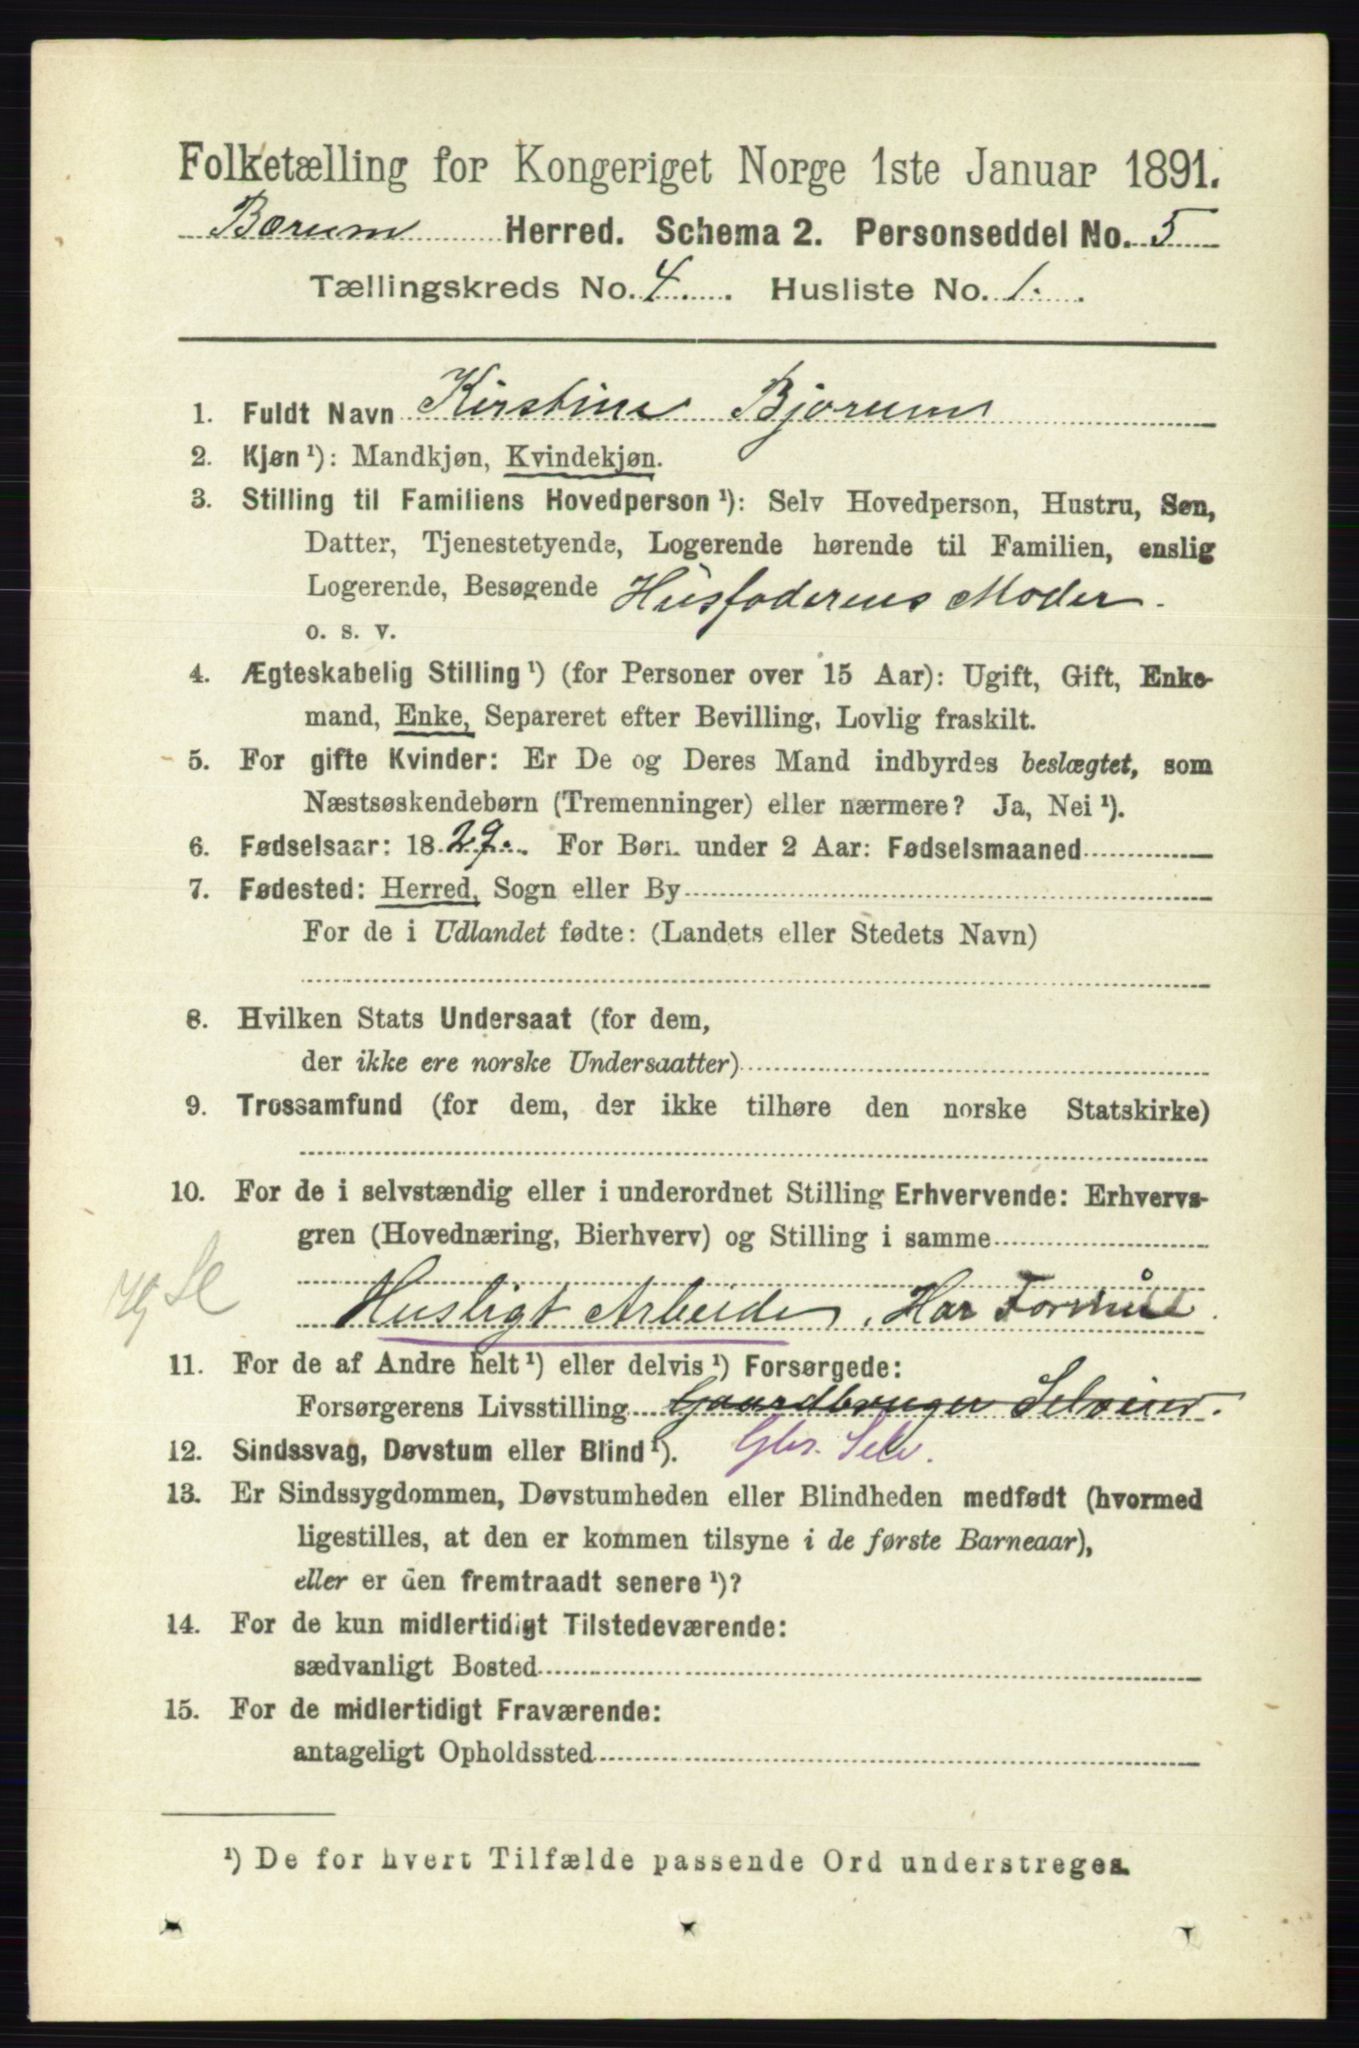 Folketælling for Kongeriget Norge 1ste Januar 1891.
Bærum Herred. Schema 2. Personseddel No. 5
Tællingskreds No. 4. Husliste No. 1.
1. Fuldt Navn Kirstine Bjorum
2. Kjøn ¹): Mandkjøn, Kvindekjøn.
3. Stilling til Familiens Hovedperson ¹): Selv Hovedperson, Hustru, Søn,
Datter, Tjenestetyende, Logerende hørende til Familien, enslig
Logerende, Besøgende Husfaderens Moder.
o. s. v.
4. Ægteskabelig Stilling ¹) (for Personer over 15 Aar): Ugift, Gift, Enke-
mand, Enke, Separeret efter Bevilling, Lovlig fraskilt.
5. For gifte Kvinder: Er De og Deres Mand indbyrdes beslægtet, som
Næstsøskendebørn (Tremenninger) eller nærmere? Ja, Nei ¹).
6. Fødselsaar: 1829. For Børn under 2 Aar: Fødselsmaaned
7. Fødested: Herred, Sogn eller By
For de i Udlandet fødte: (Landets eller Stedets Navn)
8. Hvilken Stats Undersaat (for dem,
der ikke ere norske Undersaatter)
9. Trossamfund (for dem, der ikke tilhøre den norske Statskirke)
10. For de i selvstændig eller i underordnet Stilling Erhvervende: Erhvervs-
gren (Hovednæring, Bierhverv) og Stilling i samme
Husligt Arbeide, Har Formue
11. For de af Andre helt ¹) eller delvis ¹) Forsørgede:
Forsørgerens Livsstilling Gaardbruger Selveier.
12. Sindssvag, Døvstum eller Blind ¹). Gbr. Selv.
13. Er Sindssygdommen, Døvstumheden eller Blindheden medfødt (hvormed
ligestilles, at den er kommen tilsyne i de første Barneaar),
eller er den fremtraadt senere ¹)?
14. For de kun midlertidigt Tilstedeværende:
sædvanligt Bosted
15. For de midlertidigt Fraværende:
antageligt Opholdssted
¹) De for hvert Tilfælde passende Ord understreges.